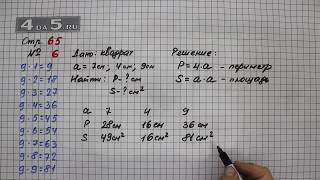 4DA5.RU
Стр 65
№ 6
9·1=9
9·2=18
9·3=27
9·4=36
9·5=45
9·6=54
9·7=63
9·8=72
9·9=81
Дано: квадрат
a=7см, 4см, 9см
Найти: P-?см
S-?см²
Решение:
P=4·a - периметр
S=a·a - площадь
a 7 4 9
P 28см 16см 36см
S 49см² 16см² 81см²